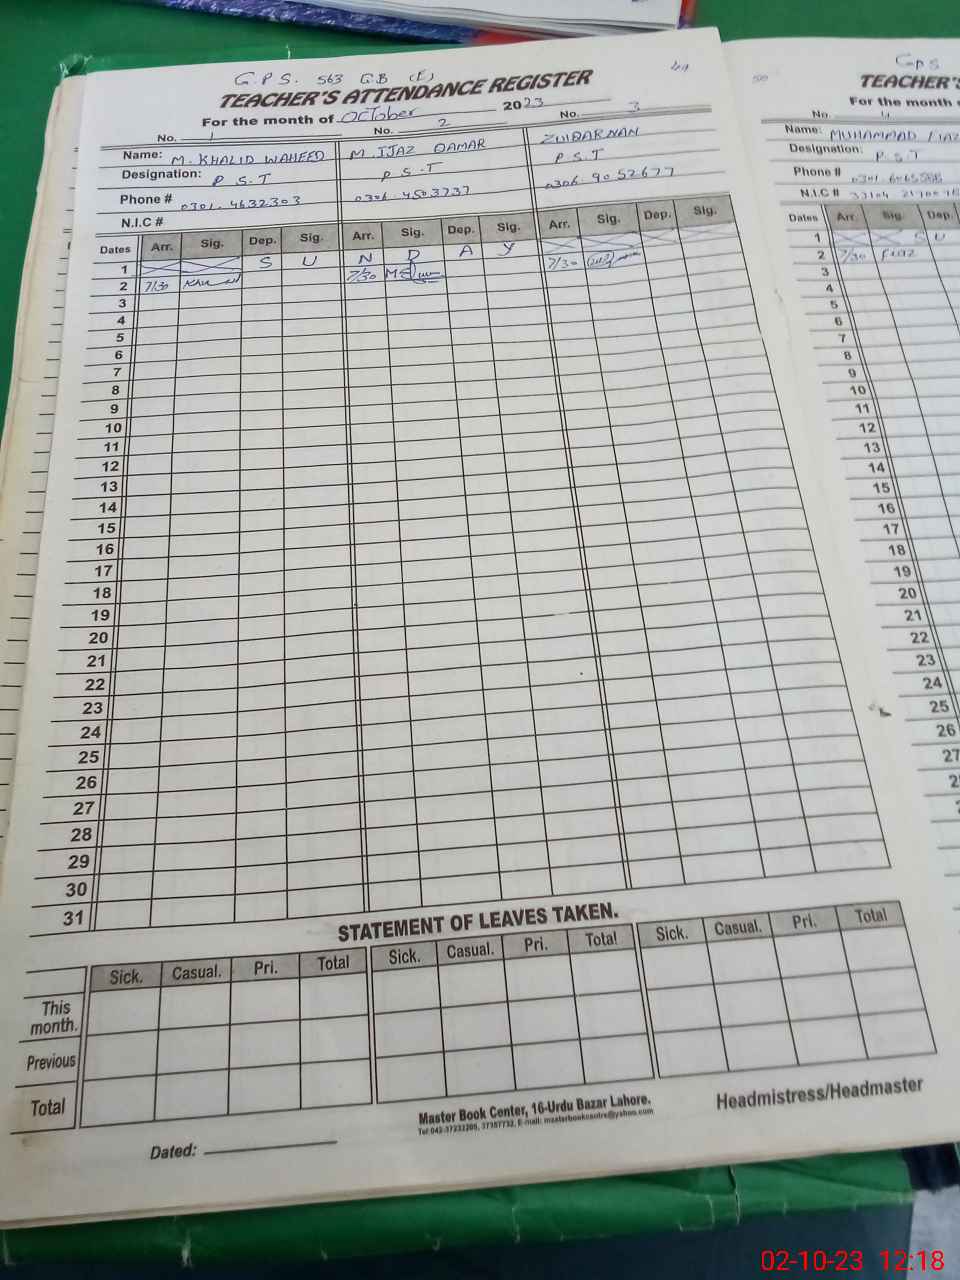 G.P.S. 563 G.B (E) 49
TEACHER'S ATTENDANCE REGISTER
For the month of October 2023
No. 1 No. 2 No. 3
Name: M. KHALID WAHEED M. IJAZ QAMAR ZULQARNAN
Designation: P.S.T P.S.T P.S.T
Phone # 0301.4632303 0306.4503737 0306.9052677
N.I.C #
Dates Arr. Sig. Dep. Sig. Arr. Sig. Dep. Sig. Arr. Sig. Dep. Sig.
1 S U N D A Y
2 7/30 7/30 7/30
3
4
5
6
7
8
9
10
11
12
13
14
15
16
17
18
19
20
21
22
23
24
25
26
27
28
29
30
31
STATEMENT OF LEAVES TAKEN.
Sick. Casual. Pri. Total Sick. Casual. Pri. Total Sick. Casual. Pri. Total
This month.
Previous
Total
Master Book Center, 16-Urdu Bazar Lahore.
Headmistress/Headmaster
Dated:
50 GPS
TEACHER'S
For the month
No. 4
Name: MUHAMMAD FIAZ
Designation: P.S.T
Phone #
N.I.C #
Dates Arr. Sig. Dep.
1 S U
2 7/30 FIAZ
3
4
5
6
7
8
9
10
11
12
13
14
15
16
17
18
19
20
21
22
23
24
25
26
27
02-10-23 12:18